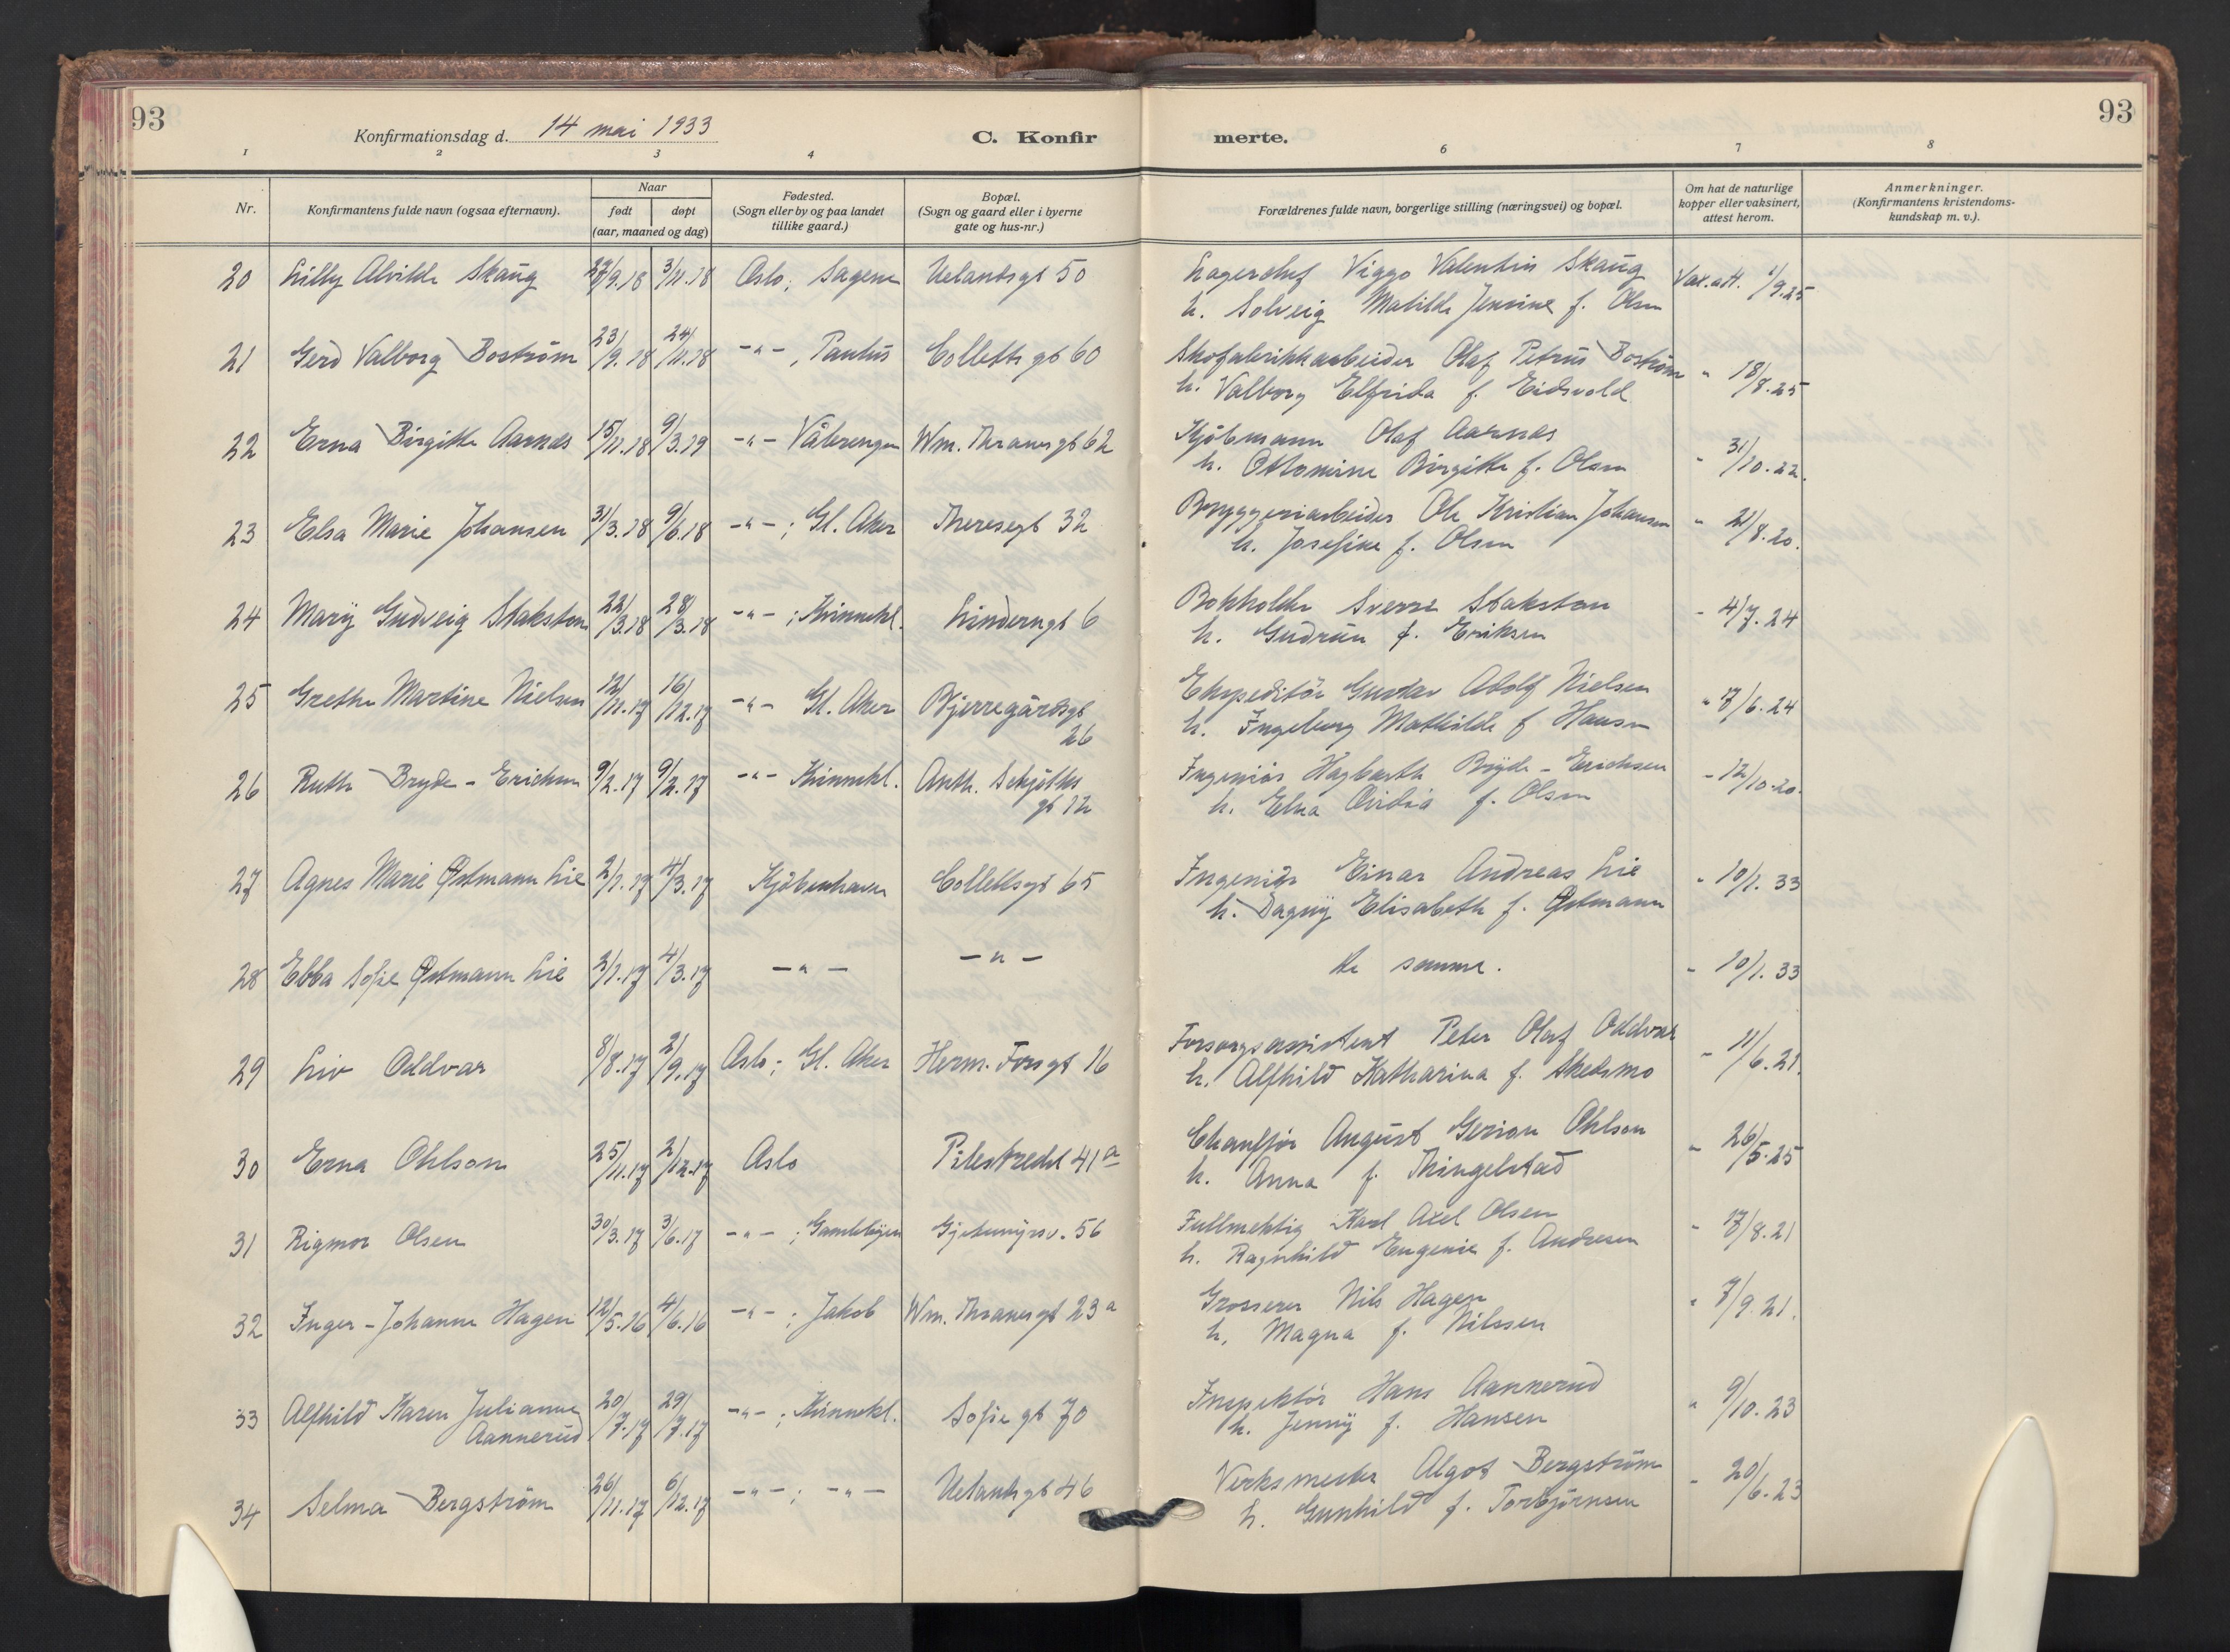 93
93
Konfirmationsdag d. 14 mai 1933
C. Konfir
merte.
1 2 3 4 6 7 8
Nr.
Konfirmantens fulde navn (ogsaa efternavn).
Naar
født døpt
(aar, maaned og dag)
Fødested.
(Sogn eller by og paa landet
tillike gaard.)
Bopæl.
(Sogn og gaard eller i byerne
gate og hus-nr.)
Forældrenes fulde navn, borgerlige stilling (næringsvei) og bopæl.
Om hat de naturlige
kopper eller vaksinert,
attest herom.
Anmerkninger.
(Konfirmantens kristendoms-
kundskap m. v.).
20 Lilly Alvilde Skaug 27/9.18 3/11.18 Oslo; Sagene Uelandsgt 50 Lagerchef Viggo Valentin Skaug Vax.att. 1/9.25
h. Solveig Matilde Jensine f. Olsen
21 Gerd Valborg Boström 23/9.18 24/11.18 -"-, Paulus Colletts gt 60 Skofabrikkarbeider Olaf Petrus Boström " 18/8.25
h. Valborg Elfrida f. Eidsvold
22 Erna Birgitte Aarnæs 15/11.18 9/3.19 -"- Vålerengen Wm. Thranes gt 62 Kjöbmann Olaf Aarnæs - 31/10.22.
h. Ottomine Birgitte f. Olsen
23 Elsa Marie Johansen 31/3.18 9/6.18 -"-; Gl. Aker Theresegt 32 Bryggeriarbeider Ole Kristian Johansen " 21/8.20.
h. Josefine f. Olsen
24 Mary Gudveig Stakston 22/3.18 28/3.18 -"-; Kvinnekl. Linderngt 6 Bokholder Sverre Stakston - 4/7.24
h. Gudrun f. Eriksen
25 Grethe Martine Nielsen 12/11.17 16/12.17 -"- Gl. Aker Bjerregårdsgt
26
Ekspeditör Gustav Adolf Nielsen " 17/6.24
h. Ingeborg Mathilde f Hansen
26 Ruth Bryde-Erichsen 9/2.17 9/2.17 -"- Kvinnekl. Anth. Schjøths
gt 12
Ingeniör Hagbarth Bryde-Erichsen - 12/10.20.
h. Elna Ovidia f. Olsen
27 Agnes Marie Østmann Lie 2/1.17 4/3.17 Kjöbenhavn Collettsgt 65 Ingeniør Einar Andreas Lie - 10/1.33
h. Dagny Elisabeth f. Østmann
28 Ebba Sofie Østmann Lie 2/1.17 4/3.17 -"- -"- de samme. - 10/1.33
29 Liv Oddvar 8/8.17 2/9.17 Oslo; Gl. Aker Herm. Fossgt 16 Forsorgsassistent Peter Olaf Oddvar - 11/6.21.
h. Alfhild Katharina f. Skedsmo
30 Erna Ohlson 25/11.17 2/12.17 Oslo Pilestredet 41a Chauffør August Gerion Ohlson - 26/5.25
h. Anna f. Thingelstad
31 Rigmor Olsen 30/3.17 3/6.17 -"-; Gamlebyen Gjetemyrsv. 56 Fullmektig Karl Axel Olsen " 17/8.21
h. Ragnhild Eugenie f. Andresen
32 Inger-Johanne Hagen 12/5.16 4/6.16 -"-; Jakob Wm. Thranes gt 23a Grosserer Nils Hagen " 7/9.21.
h. Magna f. Nilssen
33 Alfhild Karen Julianne
Aannerud
20/7.17 29/7.17 -"-; Kvinnekl. Sofie gt 70 Inspektör Hans Aannerud " 9/10.23
h. Jenny f. Hansen
34 Selma Bergström 26/11.17 6/12.17 -"-; -"- Uelandsgt 46 Verksmester Algot Bergström - 20/6.23
h. Gunhild f. Torbjørnsen